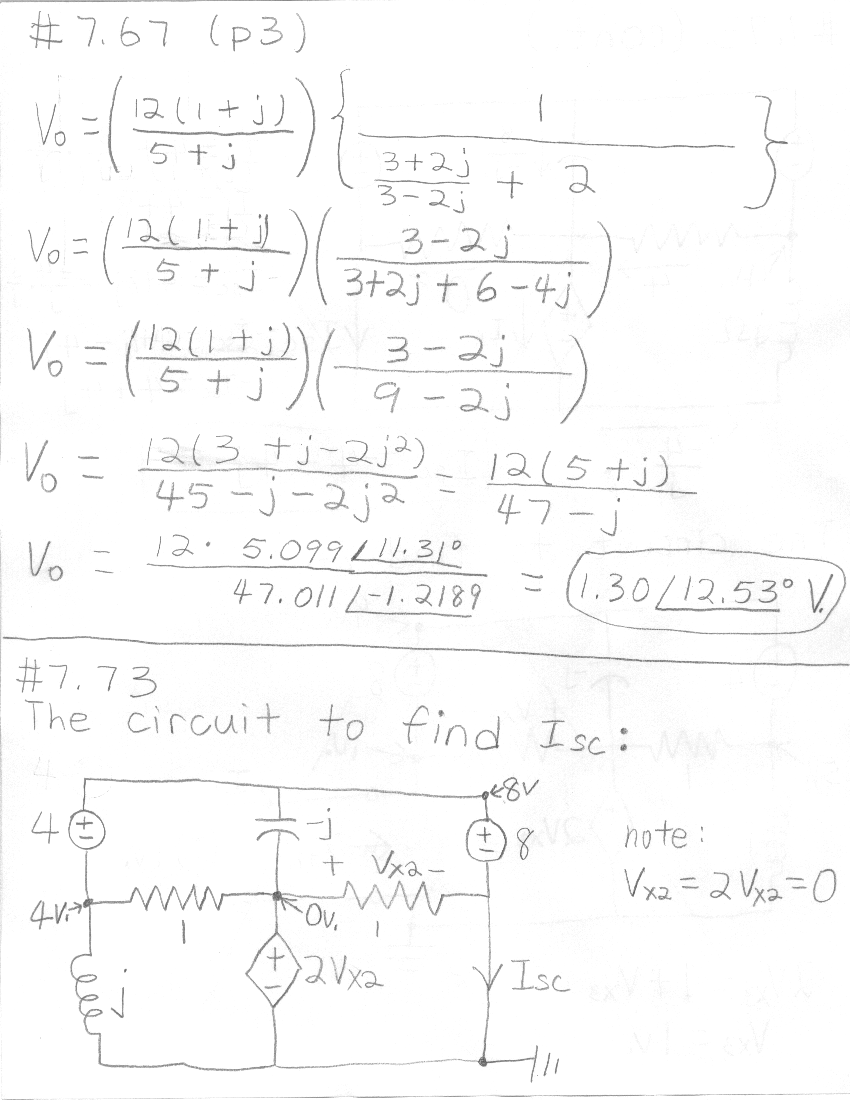 #7.67 (p3)
V₀ = (12(1 + j) / 5 + j) { 1 / ((3+2j / 3-2j) + 2) }
V₀ = (12(1 + j) / 5 + j) (3-2j / 3+2j + 6-4j)
V₀ = (12(1 + j) / 5 + j) (3-2j / 9-2j)
V₀ = 12(3 +j-2j²) / 45-j-2j² = 12(5+j) / 47-j
V₀ = 12· 5.099∠11.31° / 47.011∠-1.2189 = 1.30∠12.53° V.
#7.73
The circuit to find Isc:
←8V
4 + -
-j
+ - 8
note:
+ Vx2 -
Vx2 = 2Vx2 = 0
4V.→
0V.
1
1
+ - 2Vx2
j
Isc